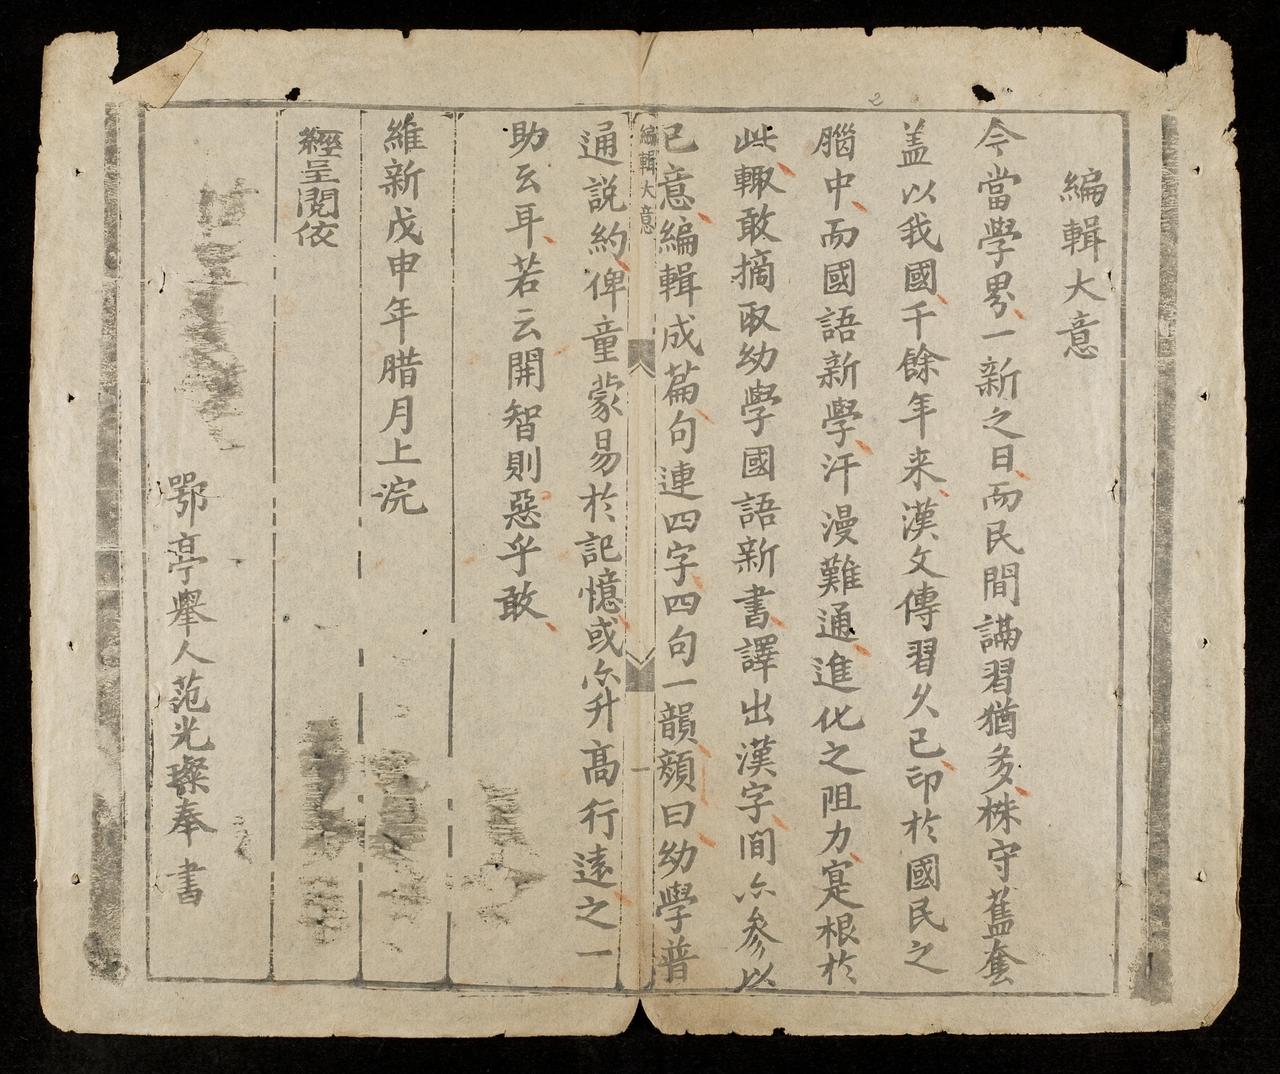 編輯大意
今當學界一新之日而民間講習猶多株守舊套
盖以我國千餘年来漢文傳習久已印於國民之
腦中而國語新學汗漫難通進化之阻力寔根於
此輙敢摘取幼學國語新書譯出漢字間亦參以
已意編輯成篇句連四字四句一韻顔曰幼學普
編輯大意
一
通說約俾童蒙易於記憶或亦升高行遠之一
助云耳若云開智則惡乎敢
維新戊申年腊月上浣
經呈閱依
鄂亭舉人范光璨奉書
2